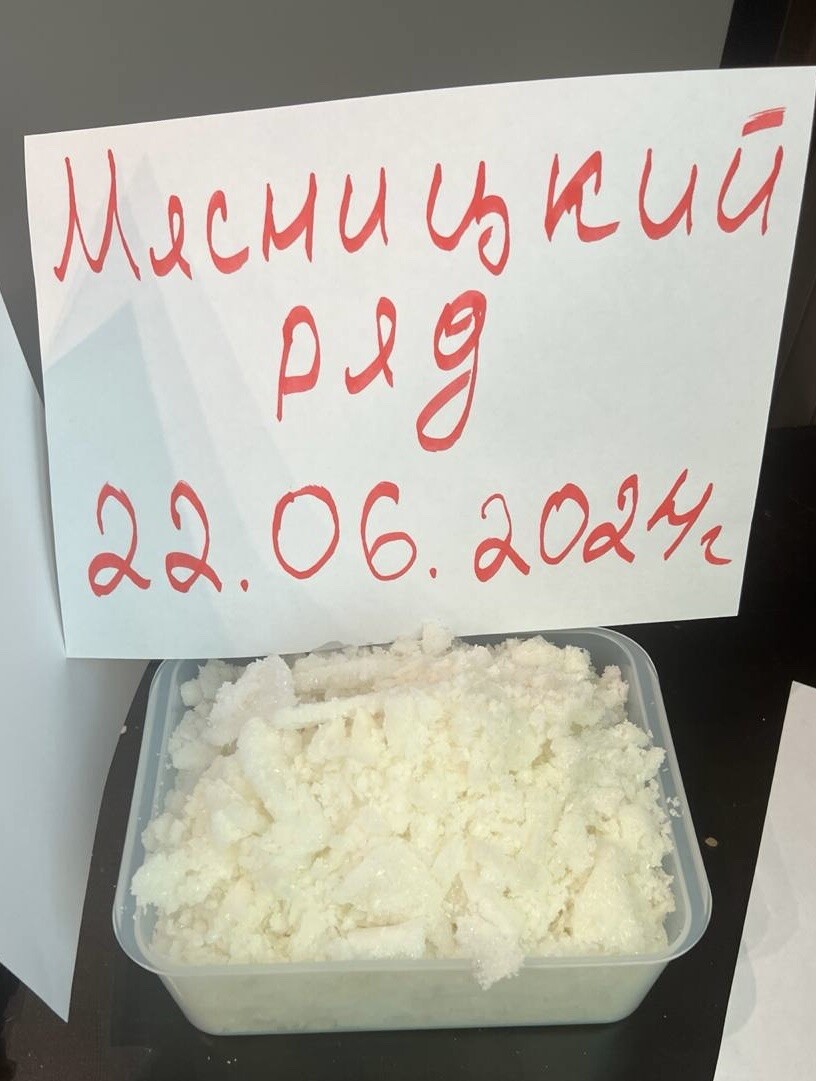 Мясницкий
ряд
22.06.2024г